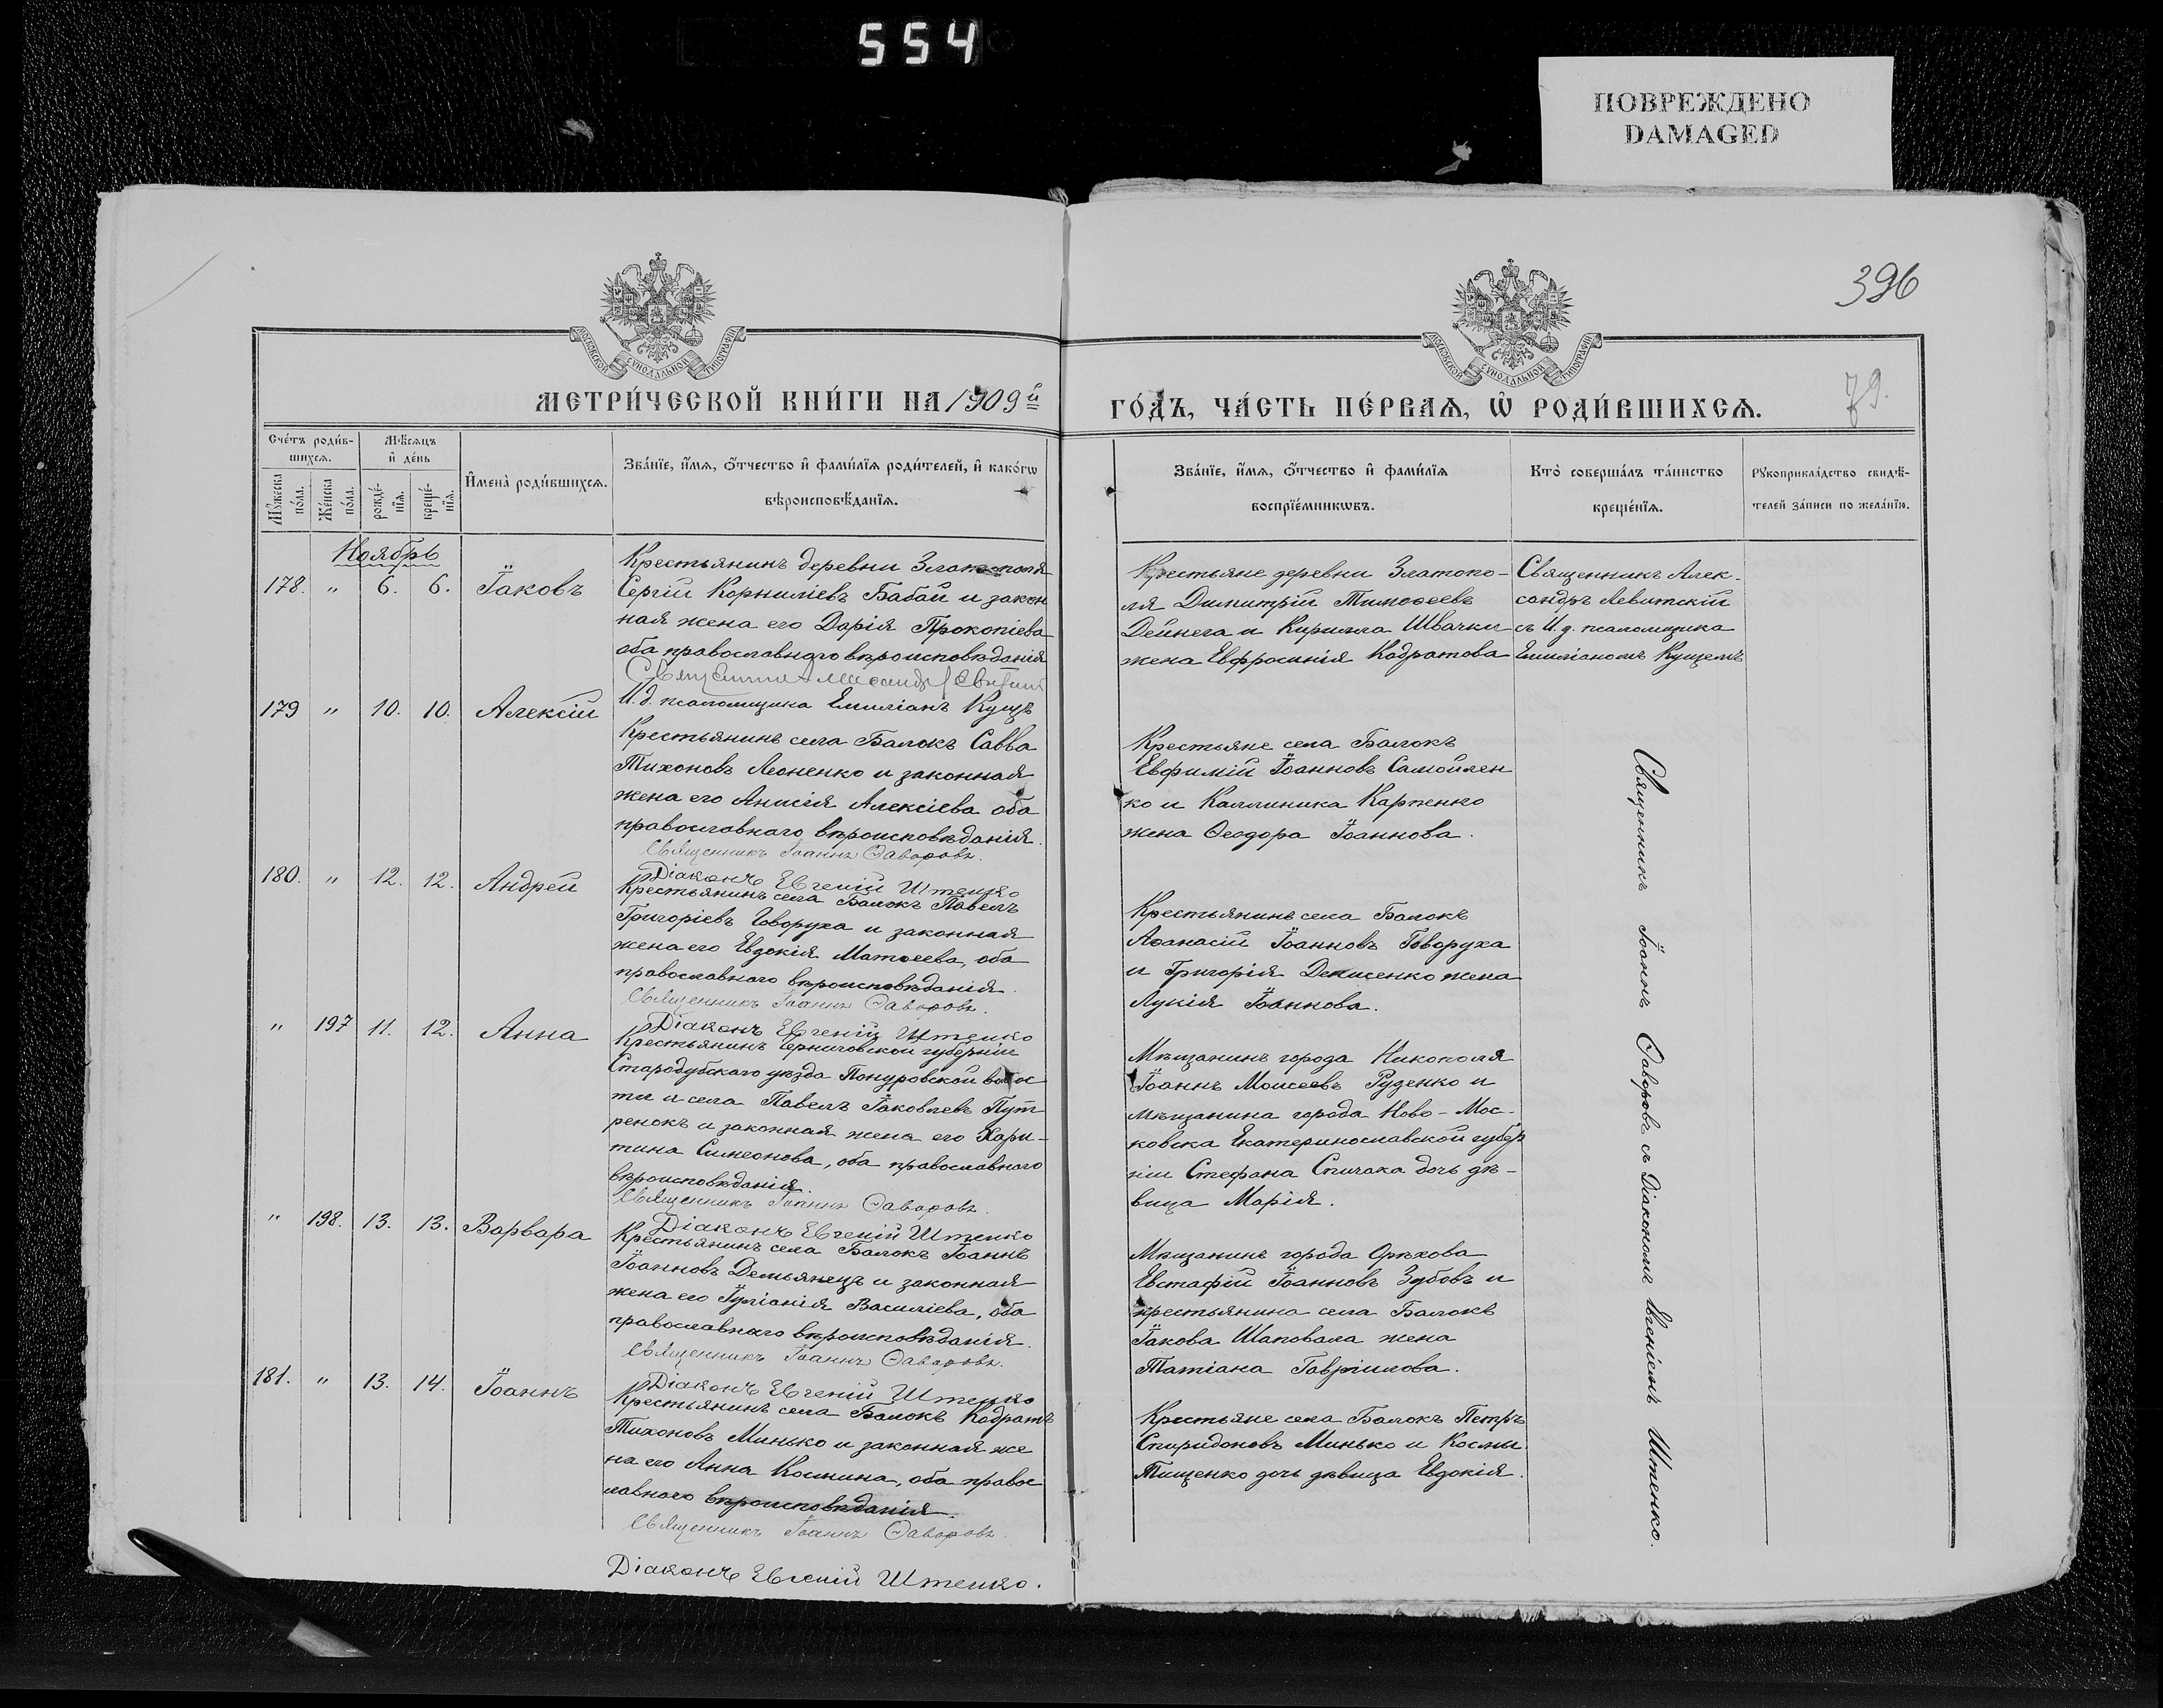 554
ПОВРЕЖДЕНО
DAMAGED
396
79.
МЕТРИ́ЧЕСКОЙ КНИ́ГИ НА 1909й
ГО́ДЪ, ЧА́СТЬ ПЕ́РВАѦ, Ѡ РОДИ́ВШИХСѦ.
Сче́тъ роди́в-
шихсѧ.
Мѣ́сѧцъ
и҆ де́нь
Мꙋ́жеска
по́ла.
Же́нска
по́ла.
рожде́-
нїѧ.
креще́-
нїѧ.
И҆мена̀ роди́вшихсѧ.
Зва́нїе, и҆́мѧ, ѻ҆́тчество и҆ фами́лїѧ роди́телей, и҆ како́гѡ
вѣроисповѣ́данїѧ.
Зва́нїе, и҆́мѧ, ѻ҆́тчество и҆ фами́лїѧ
воспрїе́мникѡвъ.
Кто̀ соверша́лъ та́инство
креще́нїѧ.
Рꙋкоприкла́дство свидѣ́-
телей за́писи по жела́нїю.
Ноябрь
178. " 6. 6. Іаковъ
Крестьянинъ деревни Златополя
Сергій Корниліевъ Бабай и закон
ная жена его Дарія Прокопіева
оба православнаго вѣроисповѣданія
И.д. псаломщика Емиліанъ Кущъ
Крестьяне деревни Златопо-
ля Димитрій Тимоѳеевъ
Дейнега и Кирилла Швачки
жена Евфросинія Кодратова
Священникъ Алек-
сандръ Левитскій
съ И.д. псаломщика
Емиліаномъ Кущемъ
179 " 10. 10. Алексій
Крестьянинъ села Балокъ Савва
Тихоновъ Леоненко и законная
жена его Анисія Алексіева оба
православнаго вѣроисповѣданія.
Священникъ Іоаннъ Ѳаворовъ.
Діаконъ Евгеній Штенко
Крестьяне села Балокъ
Евфимій Іоанновъ Самойлен
ко и Каллиника Карпенко
жена Ѳеодора Іоаннова.
180. " 12. 12. Андрей
Крестьянинъ села Балокъ Павелъ
Григоріевъ Говоруха и законная
жена его Евдокія Матѳеева, оба
православнаго вѣроисповѣданія.
Священникъ Іоаннъ Ѳаворовъ.
Діаконъ Евгеній Штенко
Крестьянинъ села Балокъ
Аѳанасій Іоанновъ Говоруха
и Григорія Денисенко жена
Лукія Іоаннова.
" 197 11. 12. Анна
Крестьянинъ Черниговской губерніи
Стародубскаго уѣзда Понуровской волос
ти и села Павелъ Іаковлевъ Пут
ренокъ и законная жена его Хари-
тина Симеонова, оба православнаго
вѣроисповѣданія.
Священникъ Іоаннъ Ѳаворовъ.
Діаконъ Евгеній Штенко
Мѣщанинъ города Никополя
Іоаннъ Моисеевъ Руденко и
мѣщанина города Ново-Мос-
ковска Екатеринославской губер
ніи Стефана Спичака дочь дѣ-
вица Марія.
" 198. 13. 13. Варвара
Крестьянинъ села Балокъ Іоаннъ
Іоанновъ Демьянецъ и законная
жена его Іуліанія Василіева, оба
православнаго вѣроисповѣданія.
Священникъ Іоаннъ Ѳаворовъ.
Діаконъ Евгеній Штенко
Мѣщанинъ города Орѣхова
Евстафій Іоанновъ Зубовъ и
крестьянина села Балокъ
Іакова Шаповала жена
Татіана Гавріилова.
181. " 13. 14. Іоаннъ
Крестьянинъ села Балокъ Кодратъ
Тихоновъ Минько и законная же
на его Анна Космина, оба правос
лавнаго вѣроисповѣданія.
Священникъ Іоаннъ Ѳаворовъ.
Діаконъ Евгеній Штенко.
Крестьяне села Балокъ Петръ
Спиридоновъ Минько и Космы
Тищенко дочь дѣвица Евдокія.
Священникъ Іоаннъ Ѳаворовъ съ Діакономъ Евгеніемъ Штенко.